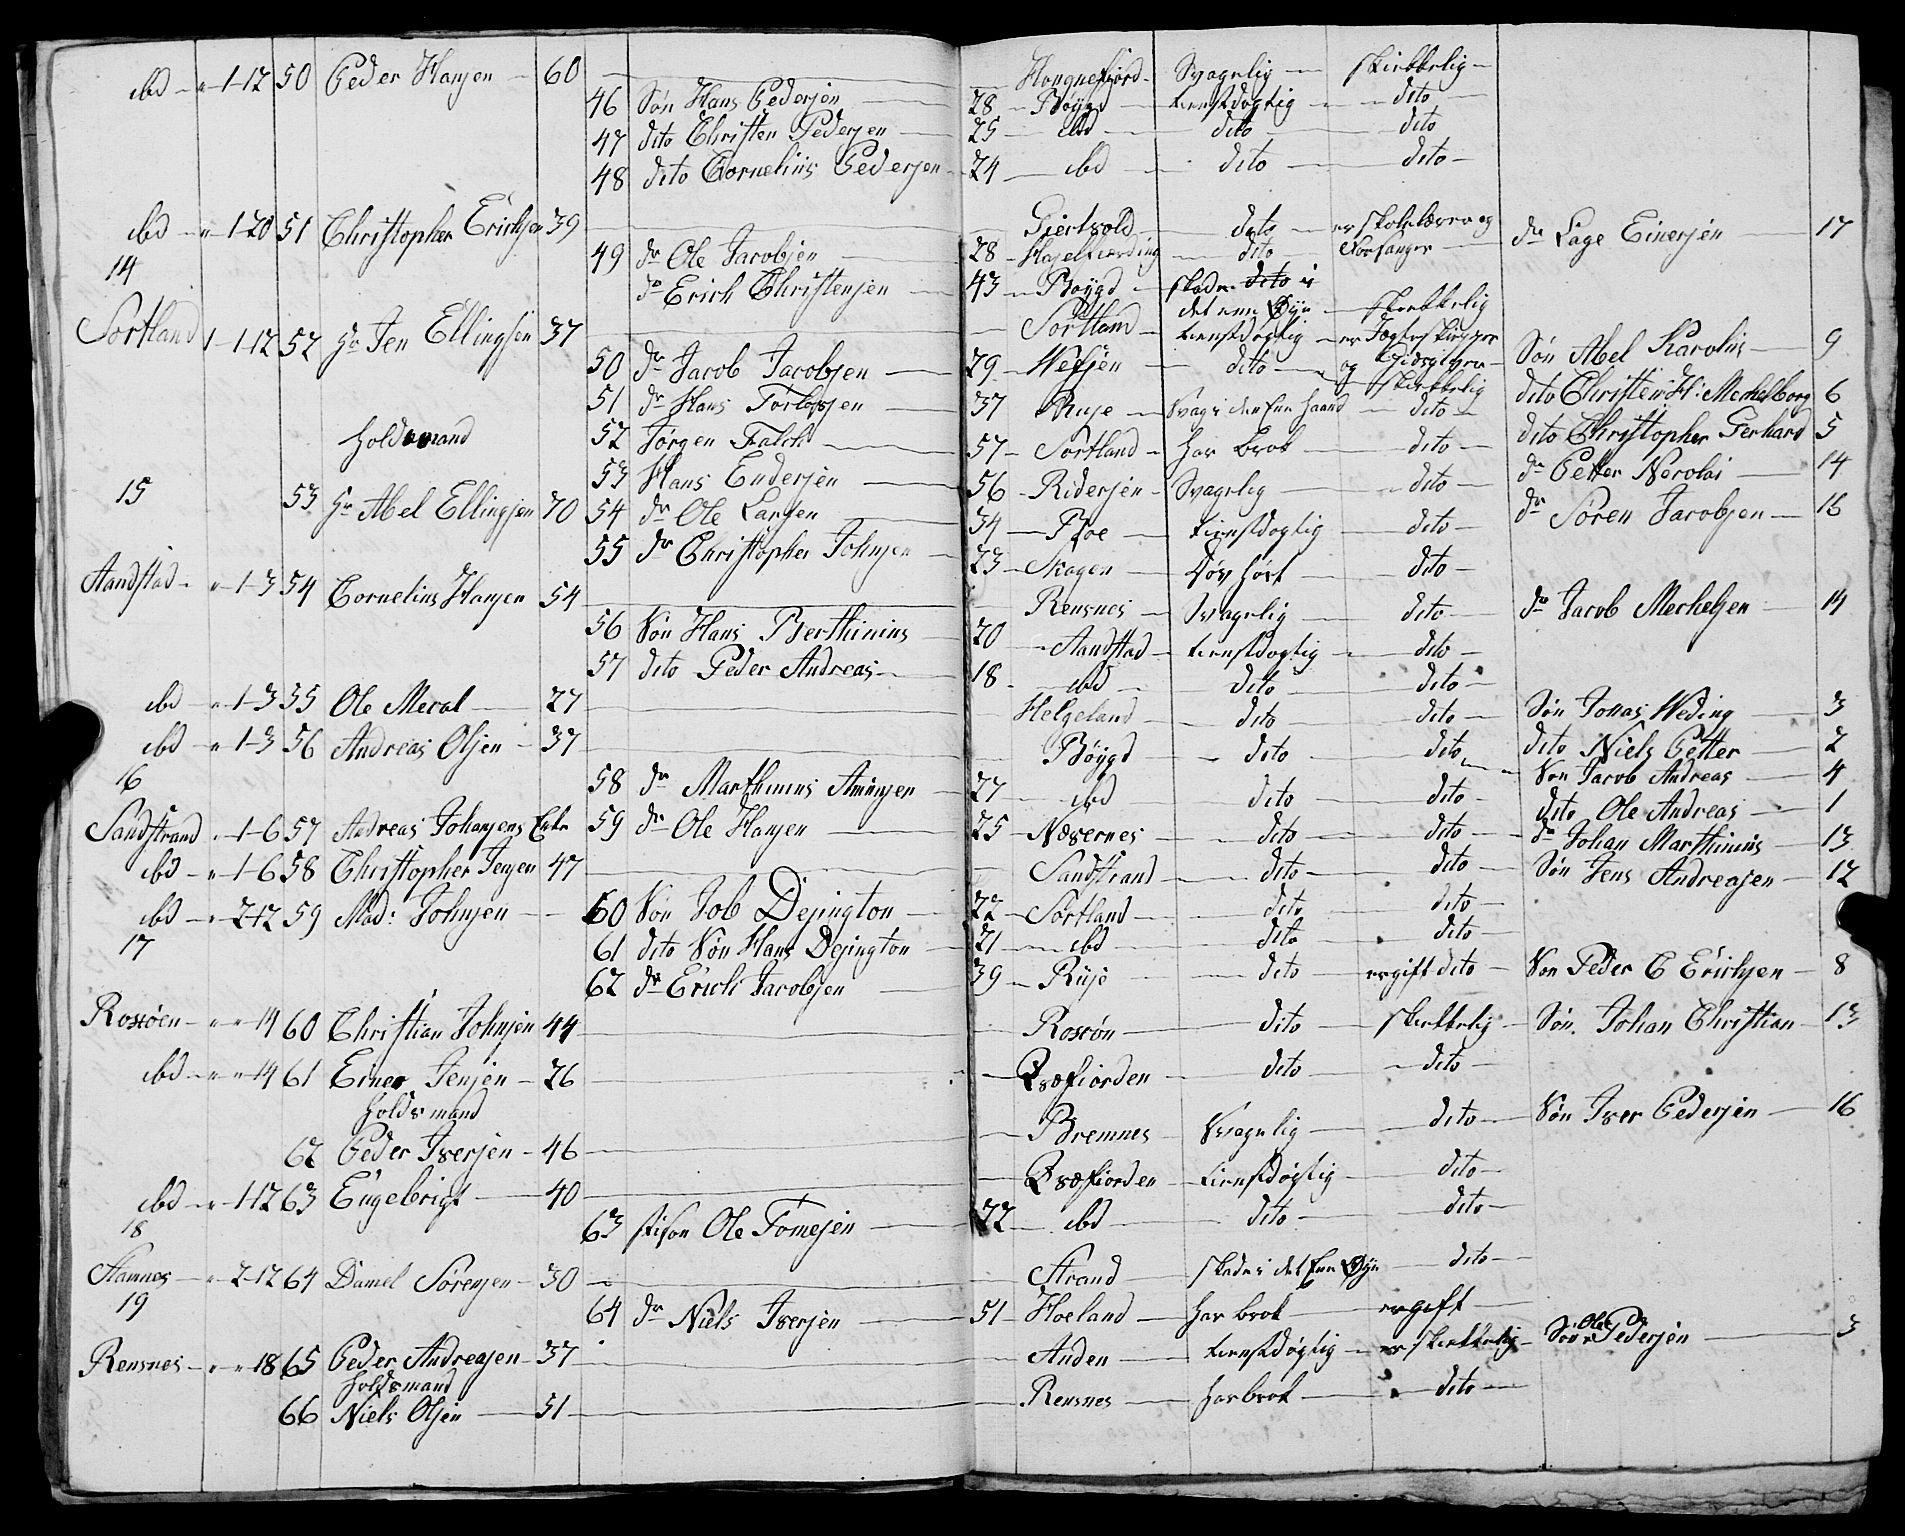 ibd - " 1-12 50 Peder Hansen - 60 — Hongnefiord - Svagelig — skiebbelig -
46 Søn Hans Pedersen — 28 - Bøygd — tienstdygtig - dito -
47 dito Christen Pedersen — 25 — ibd — dito — dito
48 dito Cornelius Pedersen - 24 — ibd — dito — dito -
ibd - " 1-20 51 Christopher Erichsen 39 — dito - er skolelærer og
Korsanger — dr Lage Einersen — 17
14
49 dr Ole Jacobsen — 28 - dito
dr Erich Christensen — 43 - Bøygd - skade i
det ene Øye — skiebbelig
Sortland 1 1-12 52 Hr Jen Ellingsen 37 — Sortland - tienstdygtig -
50 dr Jacob Jacobsen — 29 - Wefsen — dito — og — Søn Abel Karolus — 9
51 dr Hans — 37 Ruse - Svag i den Ene Haand - dito - dito Christen H: Mechelborg 6
holdsmand 52 Jørgen Falch — 57 - Sortland - har brok — dito - dito Christopher Gerhard 5
53 Hans Endersen — 56 - Ridersen - Svagelig — dito - dr Petter Nicolai — 14
15 53 Hr Abel Ellingsen 70 54 dr Ole Larsen — 34 — Boe — tienstdygtig — dito - dr Søren Jacobsen — 16
55 dr Christopher Johnsen - 23 - Skagen — Døv hørt — dito -
Aandstad - " 1-3 54 Cornelius Hansen 54 — Rensnes - Svagelig — dito - dr Jacob Mechelsen — 14
56 Søn Hans Berthinius - 20 - Aandstad - tienstdygtig - dito -
57 dito Peder Andreas - 18 - ibd - dito - dito -
ibd " 1-3 55 Ole Meral — 27 — Helgeland - dito — dito - Søn Jonas Weding — 3
ibd " 1-3 56 Andreas Olsen - 37 — Bøygd - dito — dito - dito Niels Petter — 2
Søn Jacob Andreas — 4
16
58 dr Marthinus Amunsen - 27 - ibd — dito — dito - dito Ole Andreas — 1
Sandstrand - 1-6 57 Andreas Johansens Enke 59 dr Ole Hansen — 25 - Næsernes — dito — dito - dr Johan Marthinius — 13
ibd - " 1-6 58 Christopher Jensen 47 — Sandstrand — dito — dito - Søn Jens Andreasen — 12
ibd - " 2-12 59 Mad: Johnsen - - 60 Søn Job Desington — 22 - Sortland — dito — dito -
17
61 dito Søn Hans Desington — 21 — ibd — dito — dito -
62 dr Erich Jacobsen — 39 - Ruse — dito er gift dito - Søn Peder C Erichsen - 8
Roxøen - " " 14 60 Christian Johnsen 44 — Roxøn — dito — skiebbelig - Søn. Johan Christian - 13
ibd - " " 14 61 Einer Jensen - 26 — Qvæfiorden - dito - dito -
holdsmand
62 Peder Iversen - 46 — Bremnes - Svagelig — dito - Søn Iver Pedersen — 16
ibd - " 1-12 63 Engebrigt — 40 — Qvæfiorden - tienstdygtig - dito -
18
63 stifsøn Ole Tomesen — 22 - ibd — dito — dito -
Hamnes - " 2-12 64 Daniel Sørensen - 30 — Strand — skade i det Ene Øye - dito -
19
64 dr Niels Iversen — 51 - Hoeland - har brok — er gift —
Rensnes - " " 18 65 Peder Andreasen - 37 — Anden — tienstdygtig - er skiebbelig - Søn Ole Pedersen — 3
holdsmand
66 Niels Olsen — 51 — Rensnes — har brok — dito —